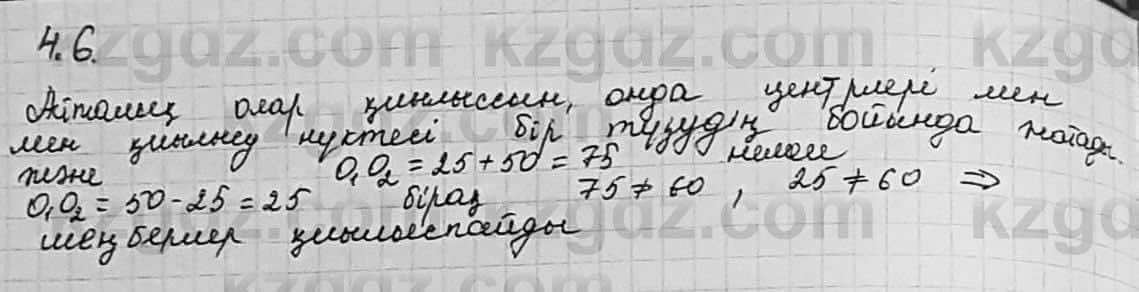 4.6.
Айталық олар қиылыссын, онда центрлері мен
мен қиылысу нүктесі бір түзудің бойында жатады
және O₁O₂ = 25 + 50 = 75 немесе
O₁O₂ = 50 - 25 = 25 бірақ 75 ≠ 60 , 25 ≠ 60 ⇒
шеңберлер қиылыспайды
kzgdz.com kzgdz.com kzgdz
kzgdz.com kzgdz.com kzgdz